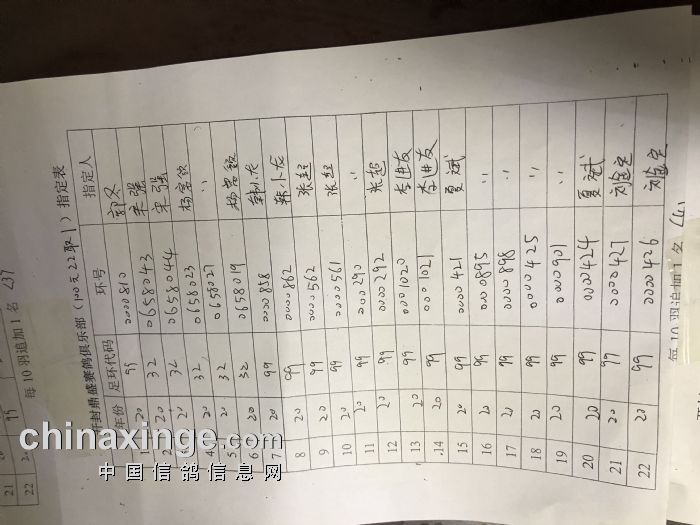 开封鼎盛赛鸽俱乐部(100元22取1)指定表
年份 足环代码 环号 指定人
1 20 99 0000810 郭久
2 20 32 0658043 宋强
3 20 32 0658044 宋强
4 20 32 0658023 杨富钦
5 20 32 0658027 〃
6 20 32 0658019
7 20 99 0000858 韩小龙
8 20 99 0000862 韩小龙
9 20 99 0000562 张超
10 20 99 0000561 张超
11 20 99 0000290 〃
12 20 99 0000292 张超
13 20 99 0001020 李进友
14 20 99 0001021 李进友
15 20 99 0000421 夏斌
16 20 99 0000895 〃
17 20 99 0000898 〃
18 20 99 0000425 〃
19 20 99 0000901 〃
20 20 99 0000424 夏斌
21 20 99 0000427 刘金定
22 20 99 0000426 刘金定
每10羽追加1名
21
22
每10羽追加1名
chinaxinge.com
中国信鸽信息网